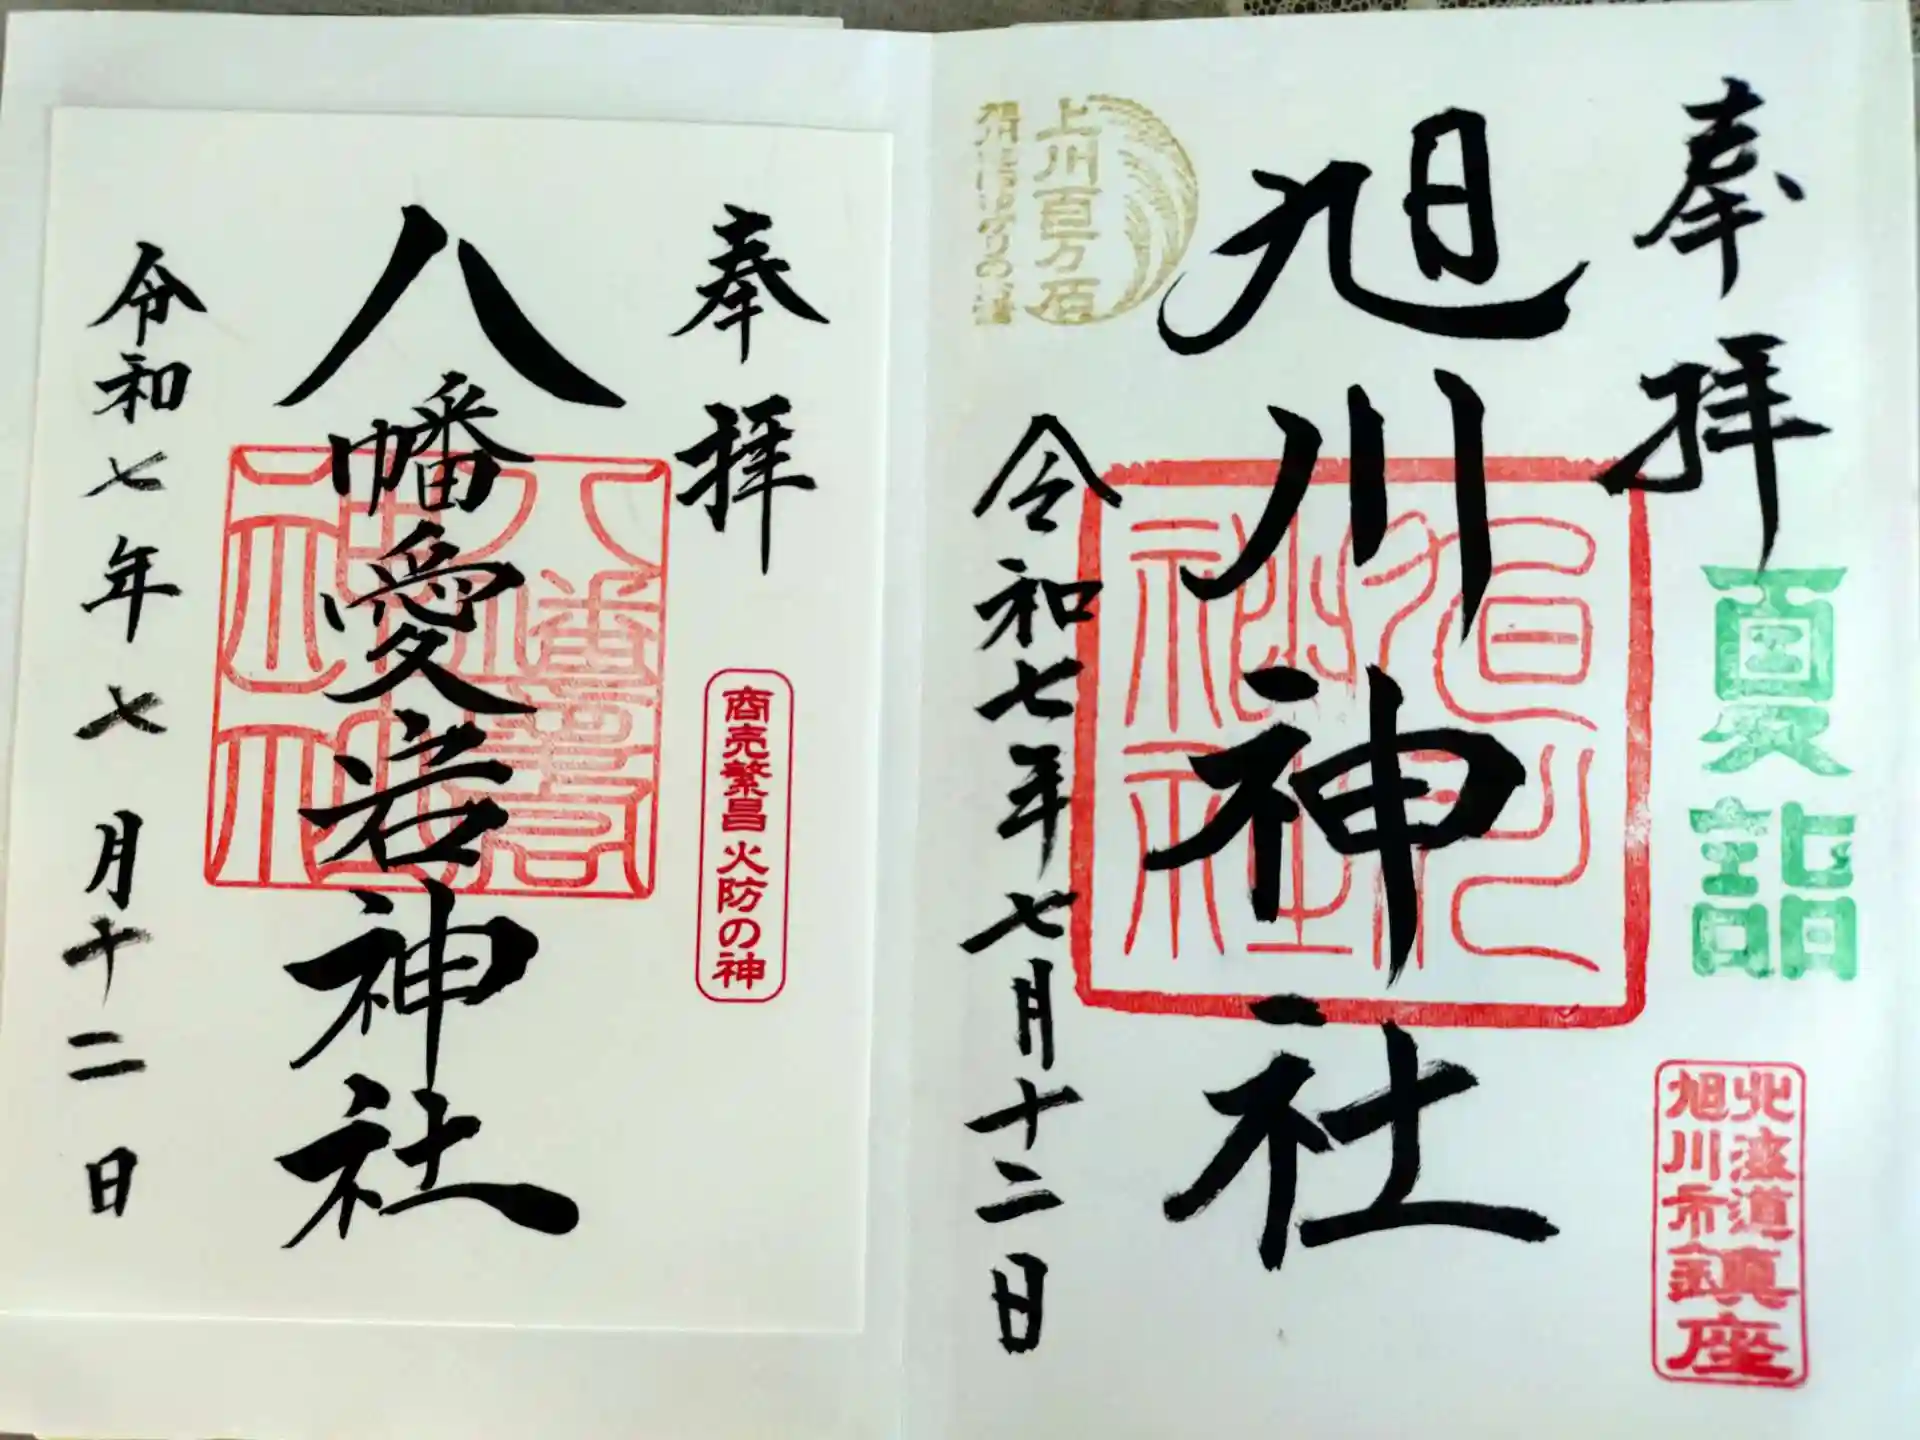 奉拝
夏詣
北海道
旭川市
鎮座
旭川神社
上川百万石
令和七年七月十二日
奉拝
商売繁昌 火防の神
八幡愛宕神社
令和七年七月十二日